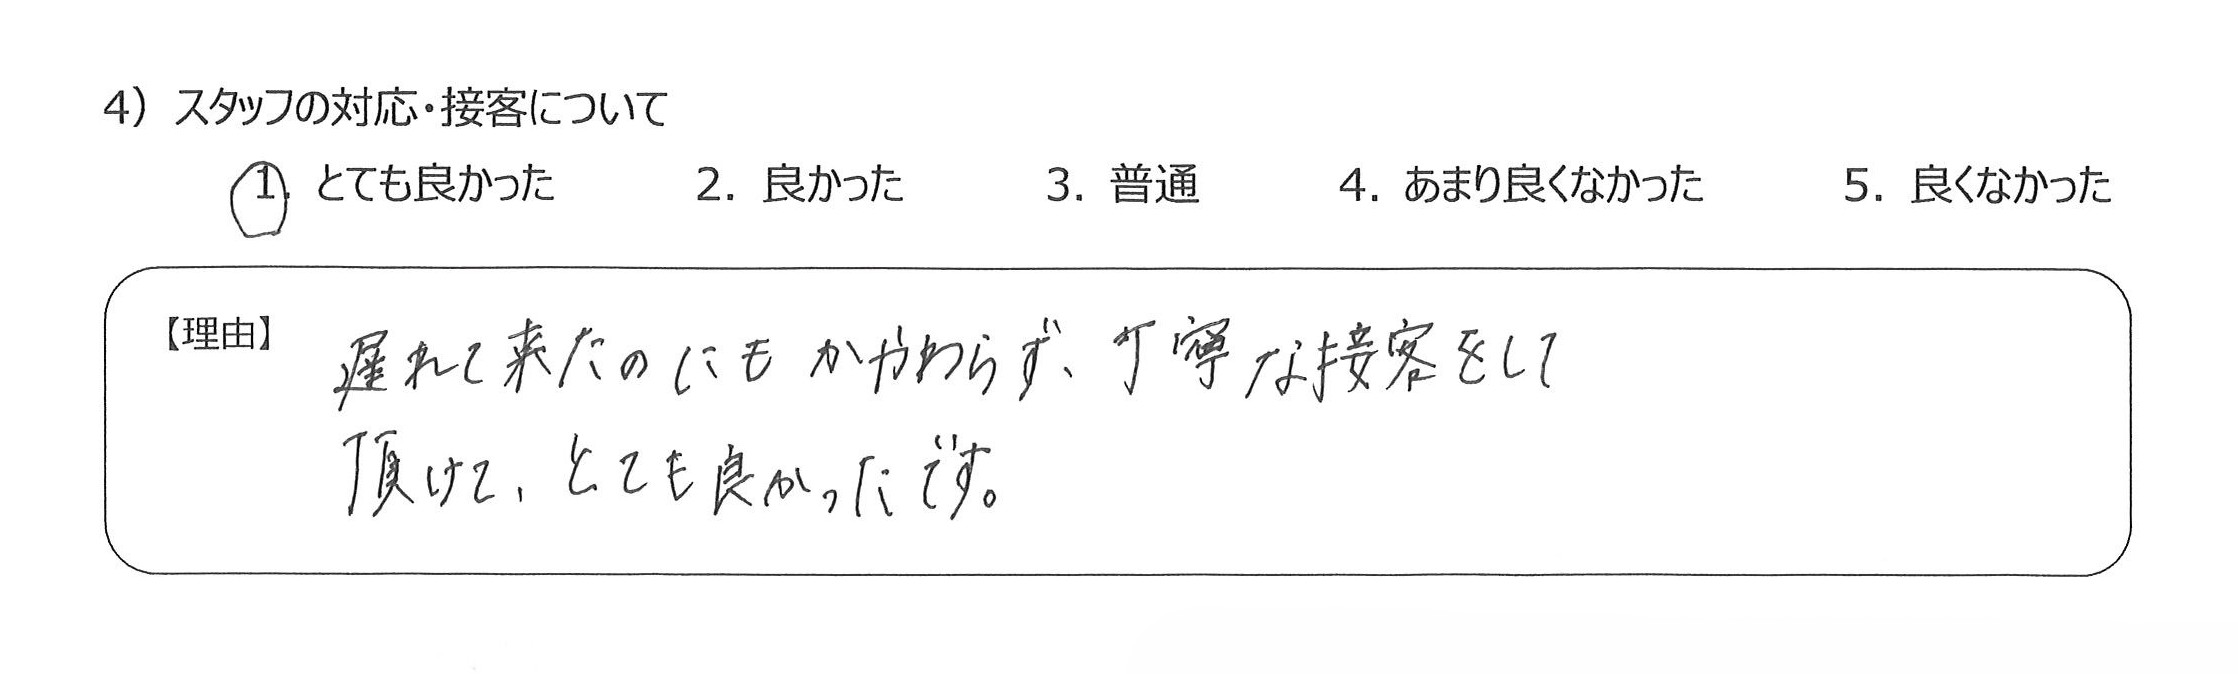 4）スタッフの対応・接客について
1. とても良かった 2. 良かった 3. 普通 4. あまり良くなかった 5. 良くなかった
【理由】
遅れて来たのにもかかわらず、丁寧な接客をして
頂けて、とても良かったです。